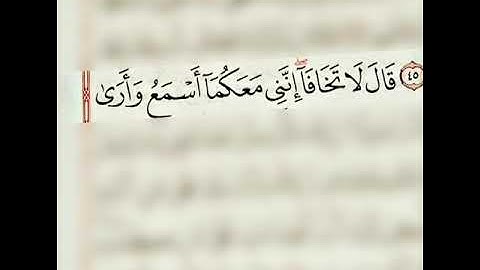 ٤٥ قَالَ لَا تَخَافَآ ۖ إِنَّنِى مَعَكُمَآ أَسْمَعُ وَأَرَىٰ